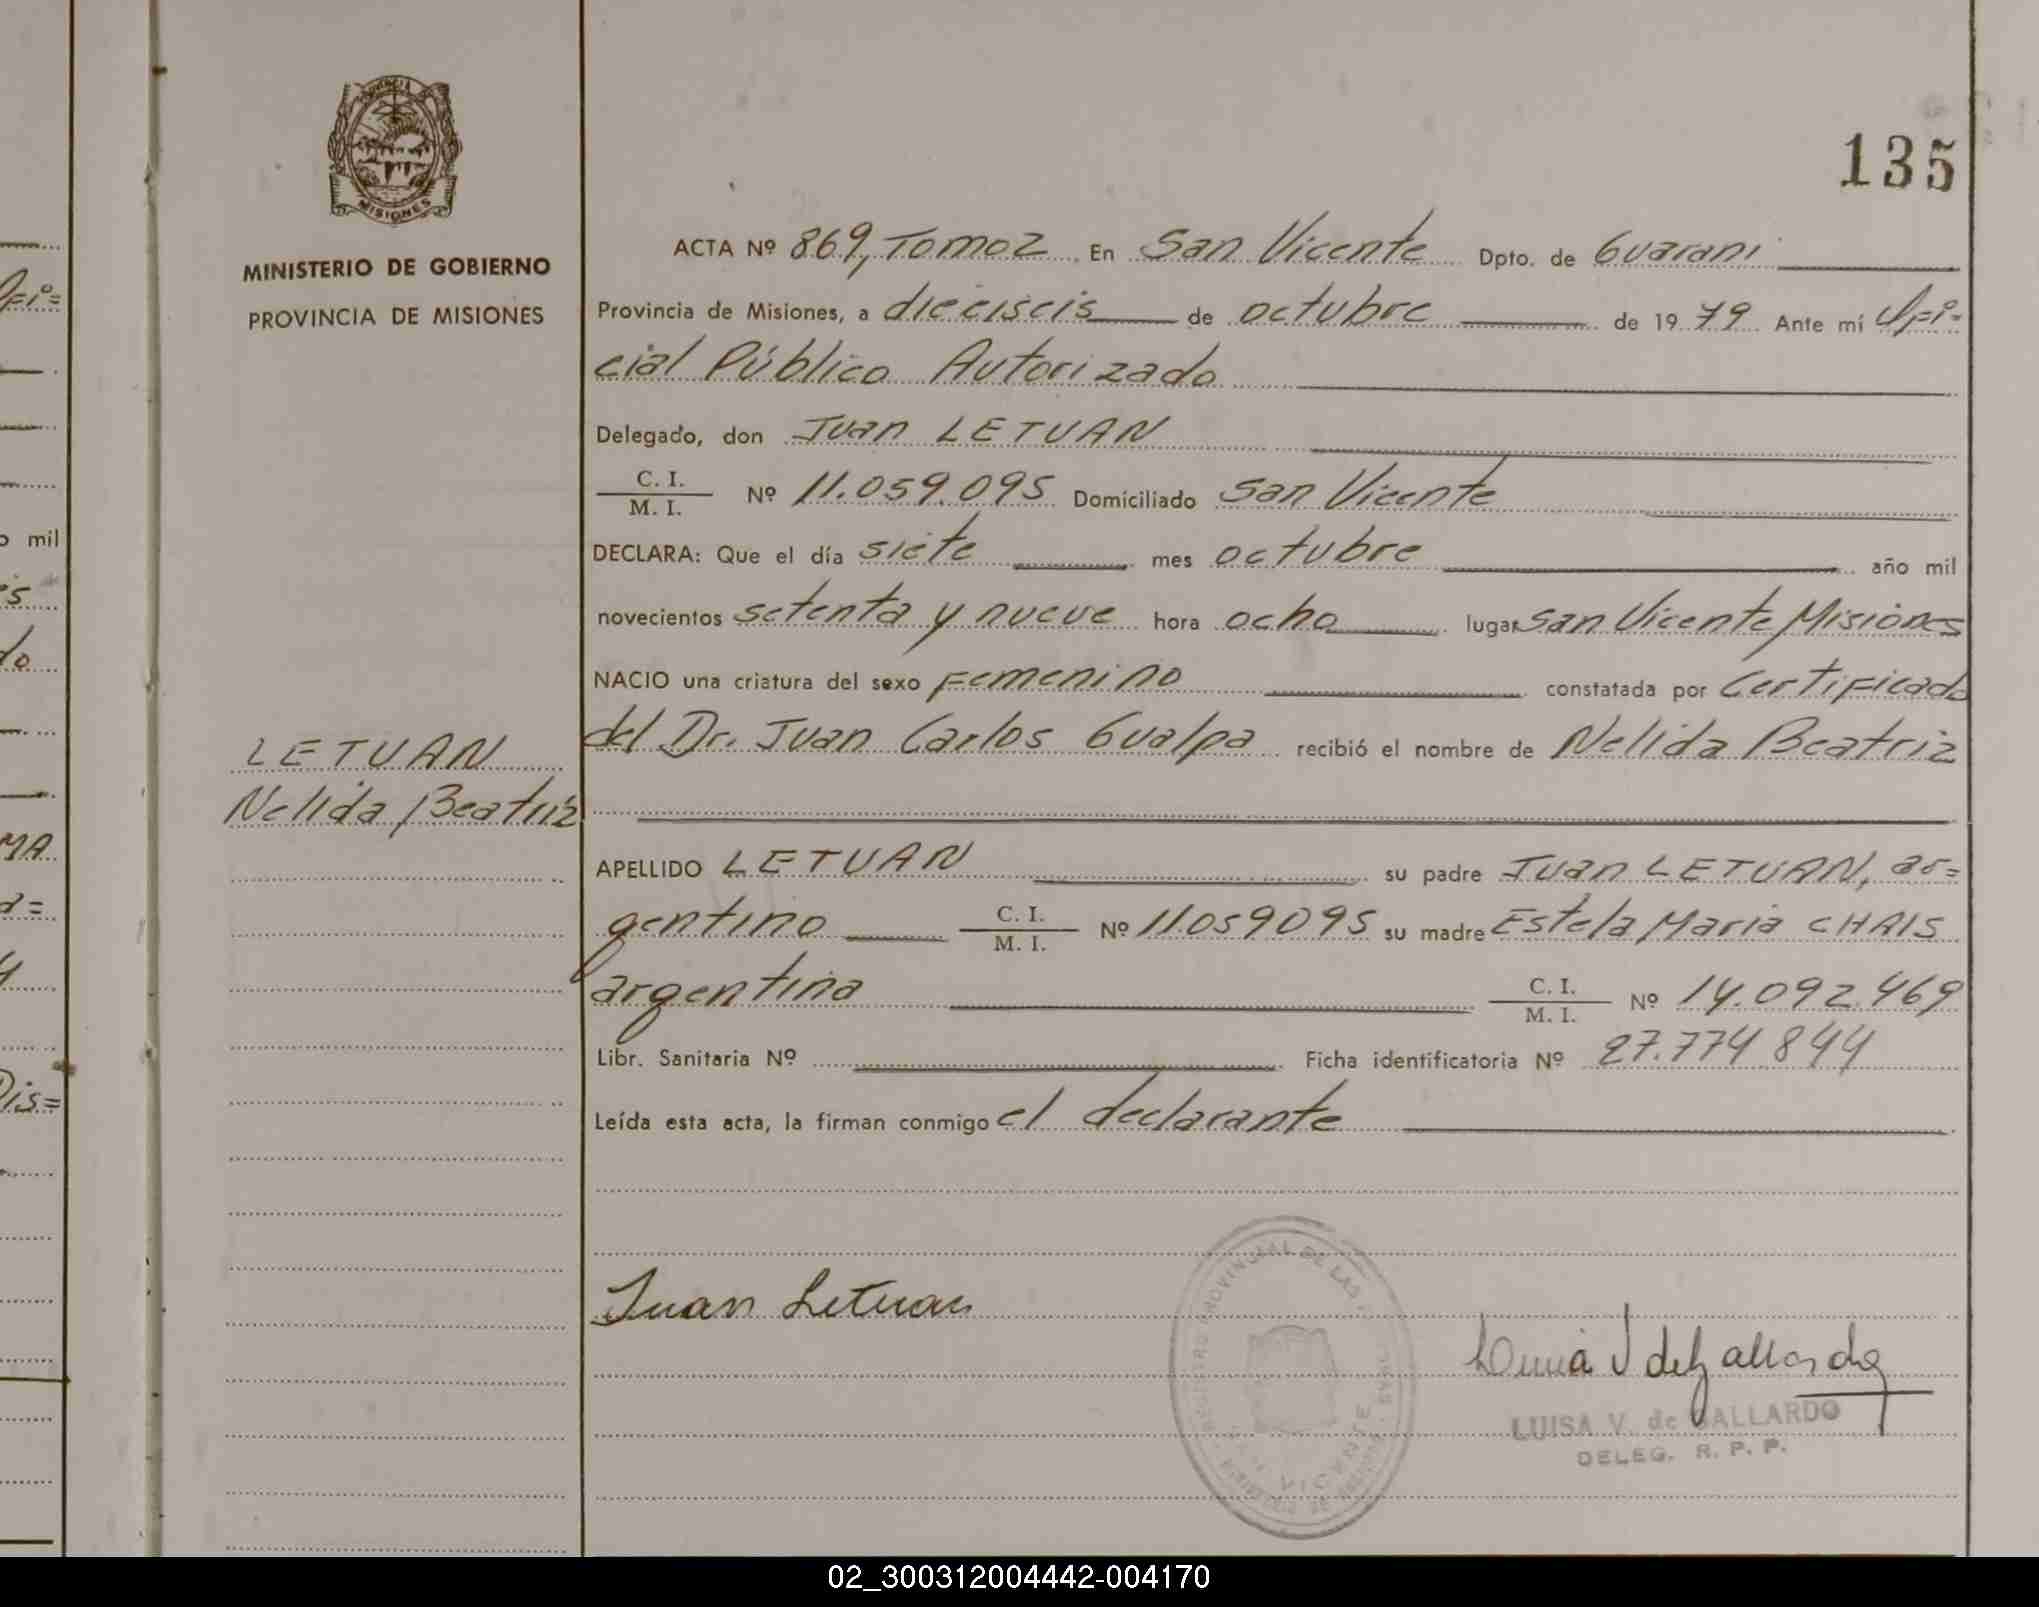 135
PROVINCIA DE
MISIONES
MINISTERIO DE GOBIERNO
PROVINCIA DE MISIONES
LETUAN
Nelida Beatriz
ACTA Nº 869, Tomo 2 En San Vicente Dpto. de Guarani
Provincia de Misiones, a dieciseis de octubre de 1979 Ante mí Ofi=
cial Público Autorizado
Delegado, don Juan LETUAN
C. I.
M. I. Nº 11.059.095 Domiciliado San Vicente
DECLARA: Que el día siete mes octubre año mil
novecientos setenta y nueve hora ocho lugar San Vicente Misiones
NACIO una criatura del sexo Femenino constatada por Certificado
del Dr. Juan Carlos Gualpa recibió el nombre de Nelida Beatriz
APELLIDO LETUAN su padre Juan LETUAN, ar=
gentino C. I. M. I. Nº 11.059095 su madre Estela Maria CHAIS
argentina C. I. M. I. Nº 14.092.469
Libr. Sanitaria Nº Ficha identificatoria Nº 27.774.844
Leída esta acta, la firman conmigo el declarante
Juan Letuan
REGISTRO PROVINCIAL DE LAS
VICENTE
LUISA V. de GALLARDO
DELEG. R. P. P.
02_300312004442-004170